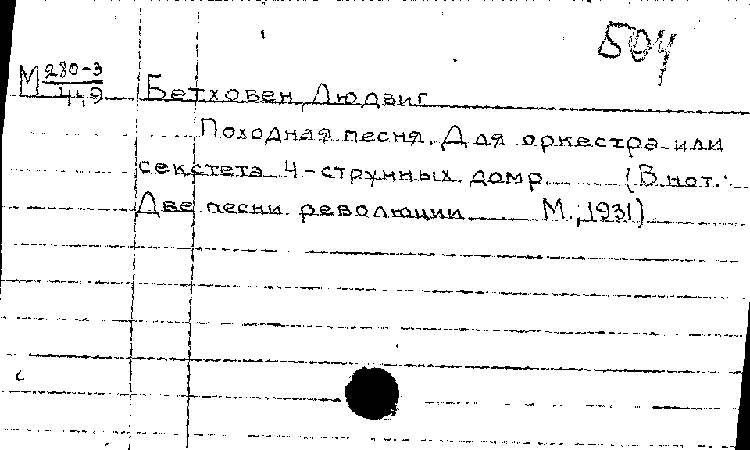 504
М 280-3
449
Бетховен, Людвиг
Походная песня. Для оркестра или
секстета 4-струнных домр (В нот.:
Две песни революции М., 1931)